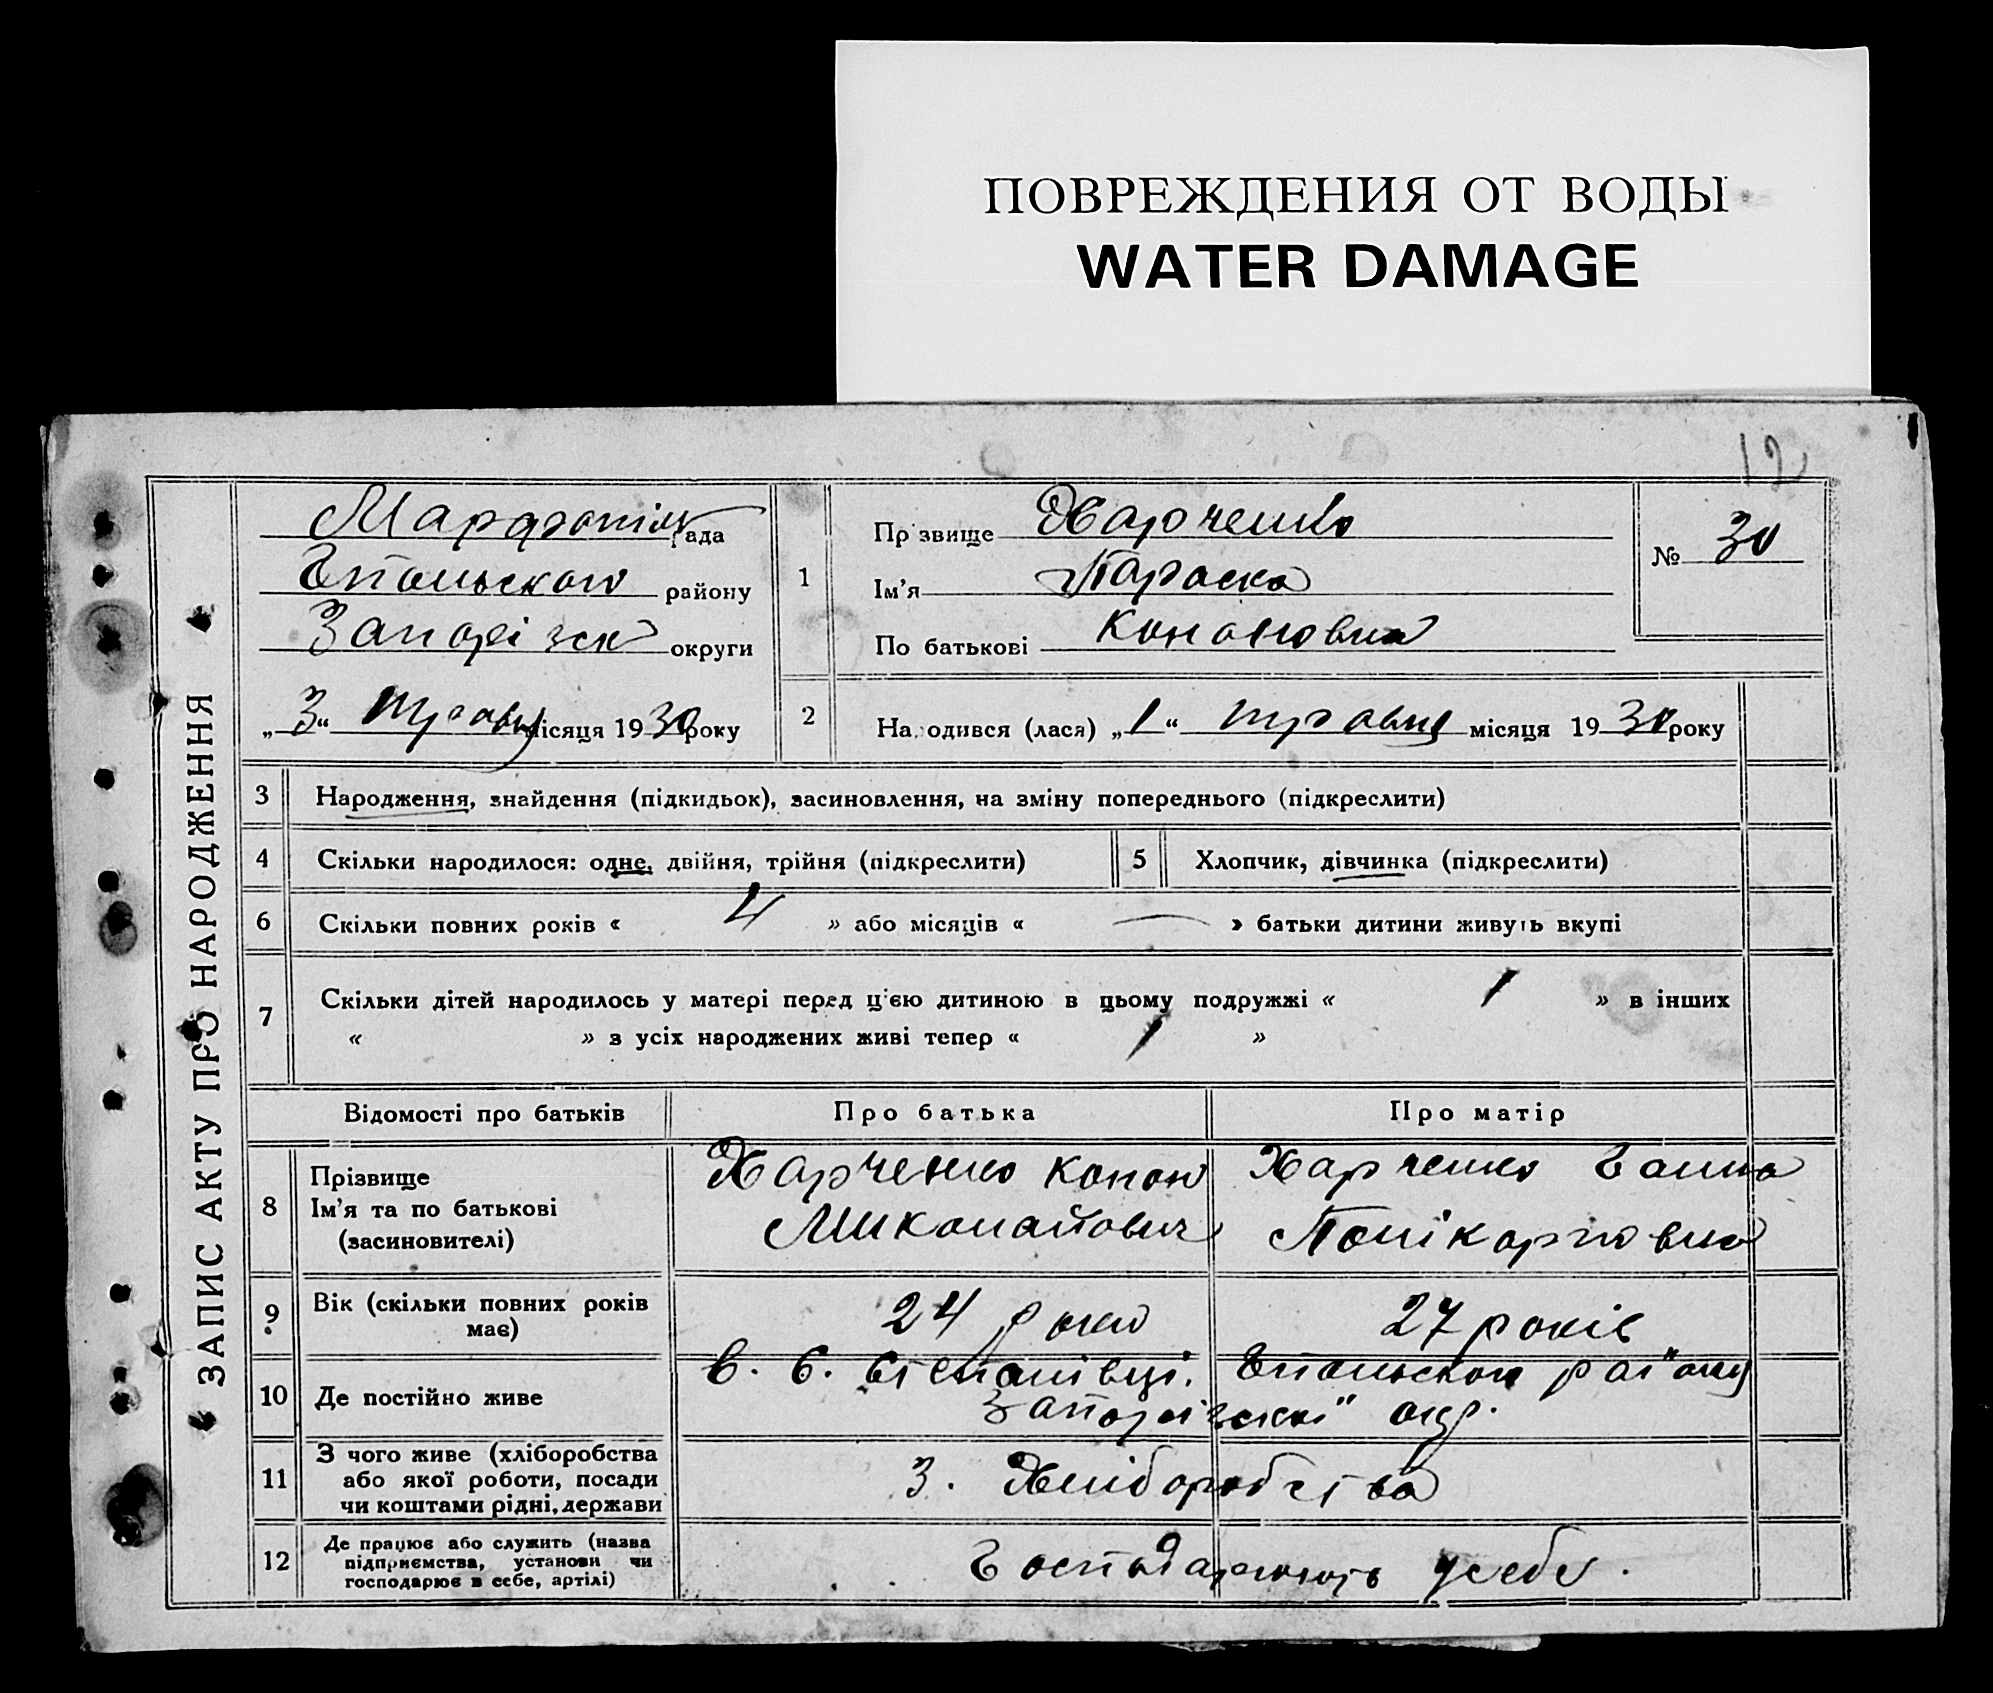 ПОВРЕЖДЕНИЯ ОТ ВОДЫ
WATER DAMAGE
12
ЗАПИС АКТУ ПРО НАРОДЖЕННЯ
Марфопіль рада
району
Запорізск округи
„3“ Травня місяця 1930 року
1
Прізвище Харченко
Ім'я Параска
По батькові Кононовна
№ 30
2
Народився (лася) „1“ травня місяця 1930 року
3 Народження, знайдення (підкидьок), засиновлення, на зміну попереднього (підкреслити)
4 Скільки народилося: одне, двійня, трійня (підкреслити)
5 Хлопчик, дівчинка (підкреслити)
6 Скільки повних років « 4 » або місяців « — » батьки дитини живуть вкупі
7 Скільки дітей народилось у матері перед цією дитиною в цьому подружжі « 1 » в інших
« » з усіх народжених живі тепер « 1 »
Відомості про батьків Про батька Про матір
8 Прізвище
Ім'я та по батькові
(засиновителі)
Харченко Конон
Миколайович
Харченко Ганна
Полікарповна
9 Вік (скільки повних років
має)
24 роки
27 років
10 Де постійно живе
в. с. Степанівці. району
Запорізскої окр.
11 З чого живе (хліборобства
або якої роботи, посади
чи коштами рідні, держави
З. Хліборобства
12 Де працює або служить (назва
підприємства, установи чи
господарює в себе, артілі)
Господарюють у себе.